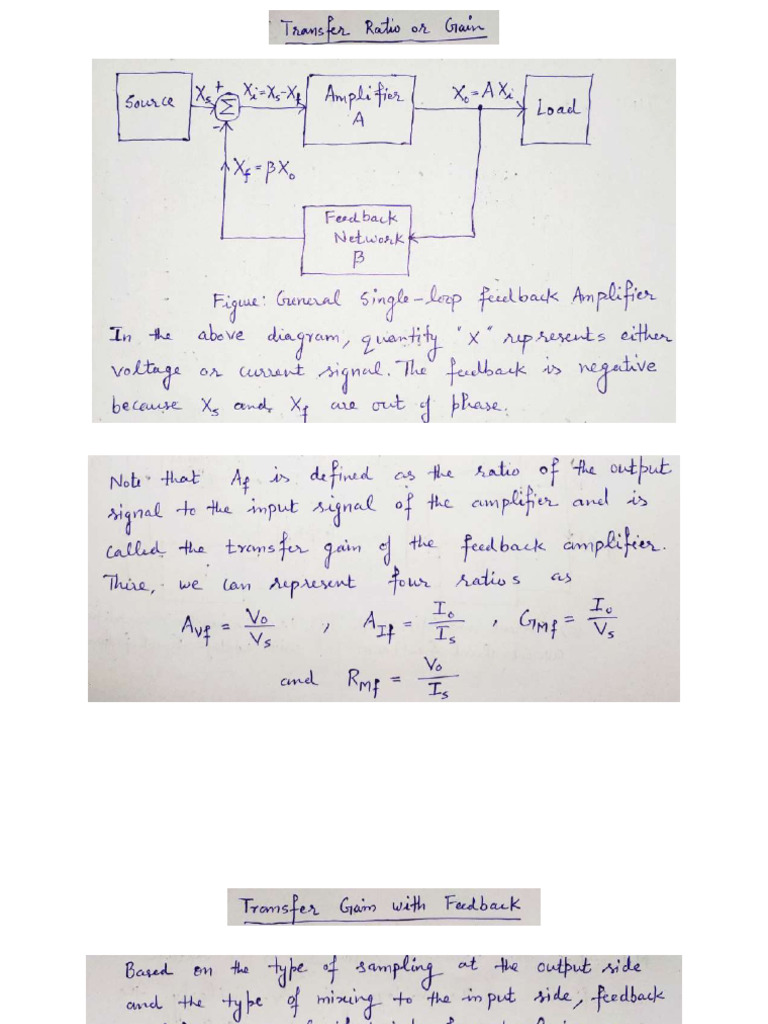 Transfer Ratio or Gain
Source
Xs
+
Σ
-
Xi=Xs-Xf
Amplifier
A
Xo=AXi
Load
Xf=βXo
Feedback
Network
β
Figure: General Single-loop feedback Amplifier
In the above diagram, quantity "X" represents either
voltage or current signal. The feedback is negative
because Xs and Xf are out of phase.
Note that Af is defined as the ratio of the output
signal to the input signal of the amplifier and is
called the transfer gain of the feedback amplifier.
There, we can represent four ratios as
AVf = Vo/Vs , AIf = Io/Is , GMf = Io/Vs
and RMf = Vo/Is
Transfer Gain with Feedback
Based on the type of sampling at the output side
and the type of mixing to the input side, feedback